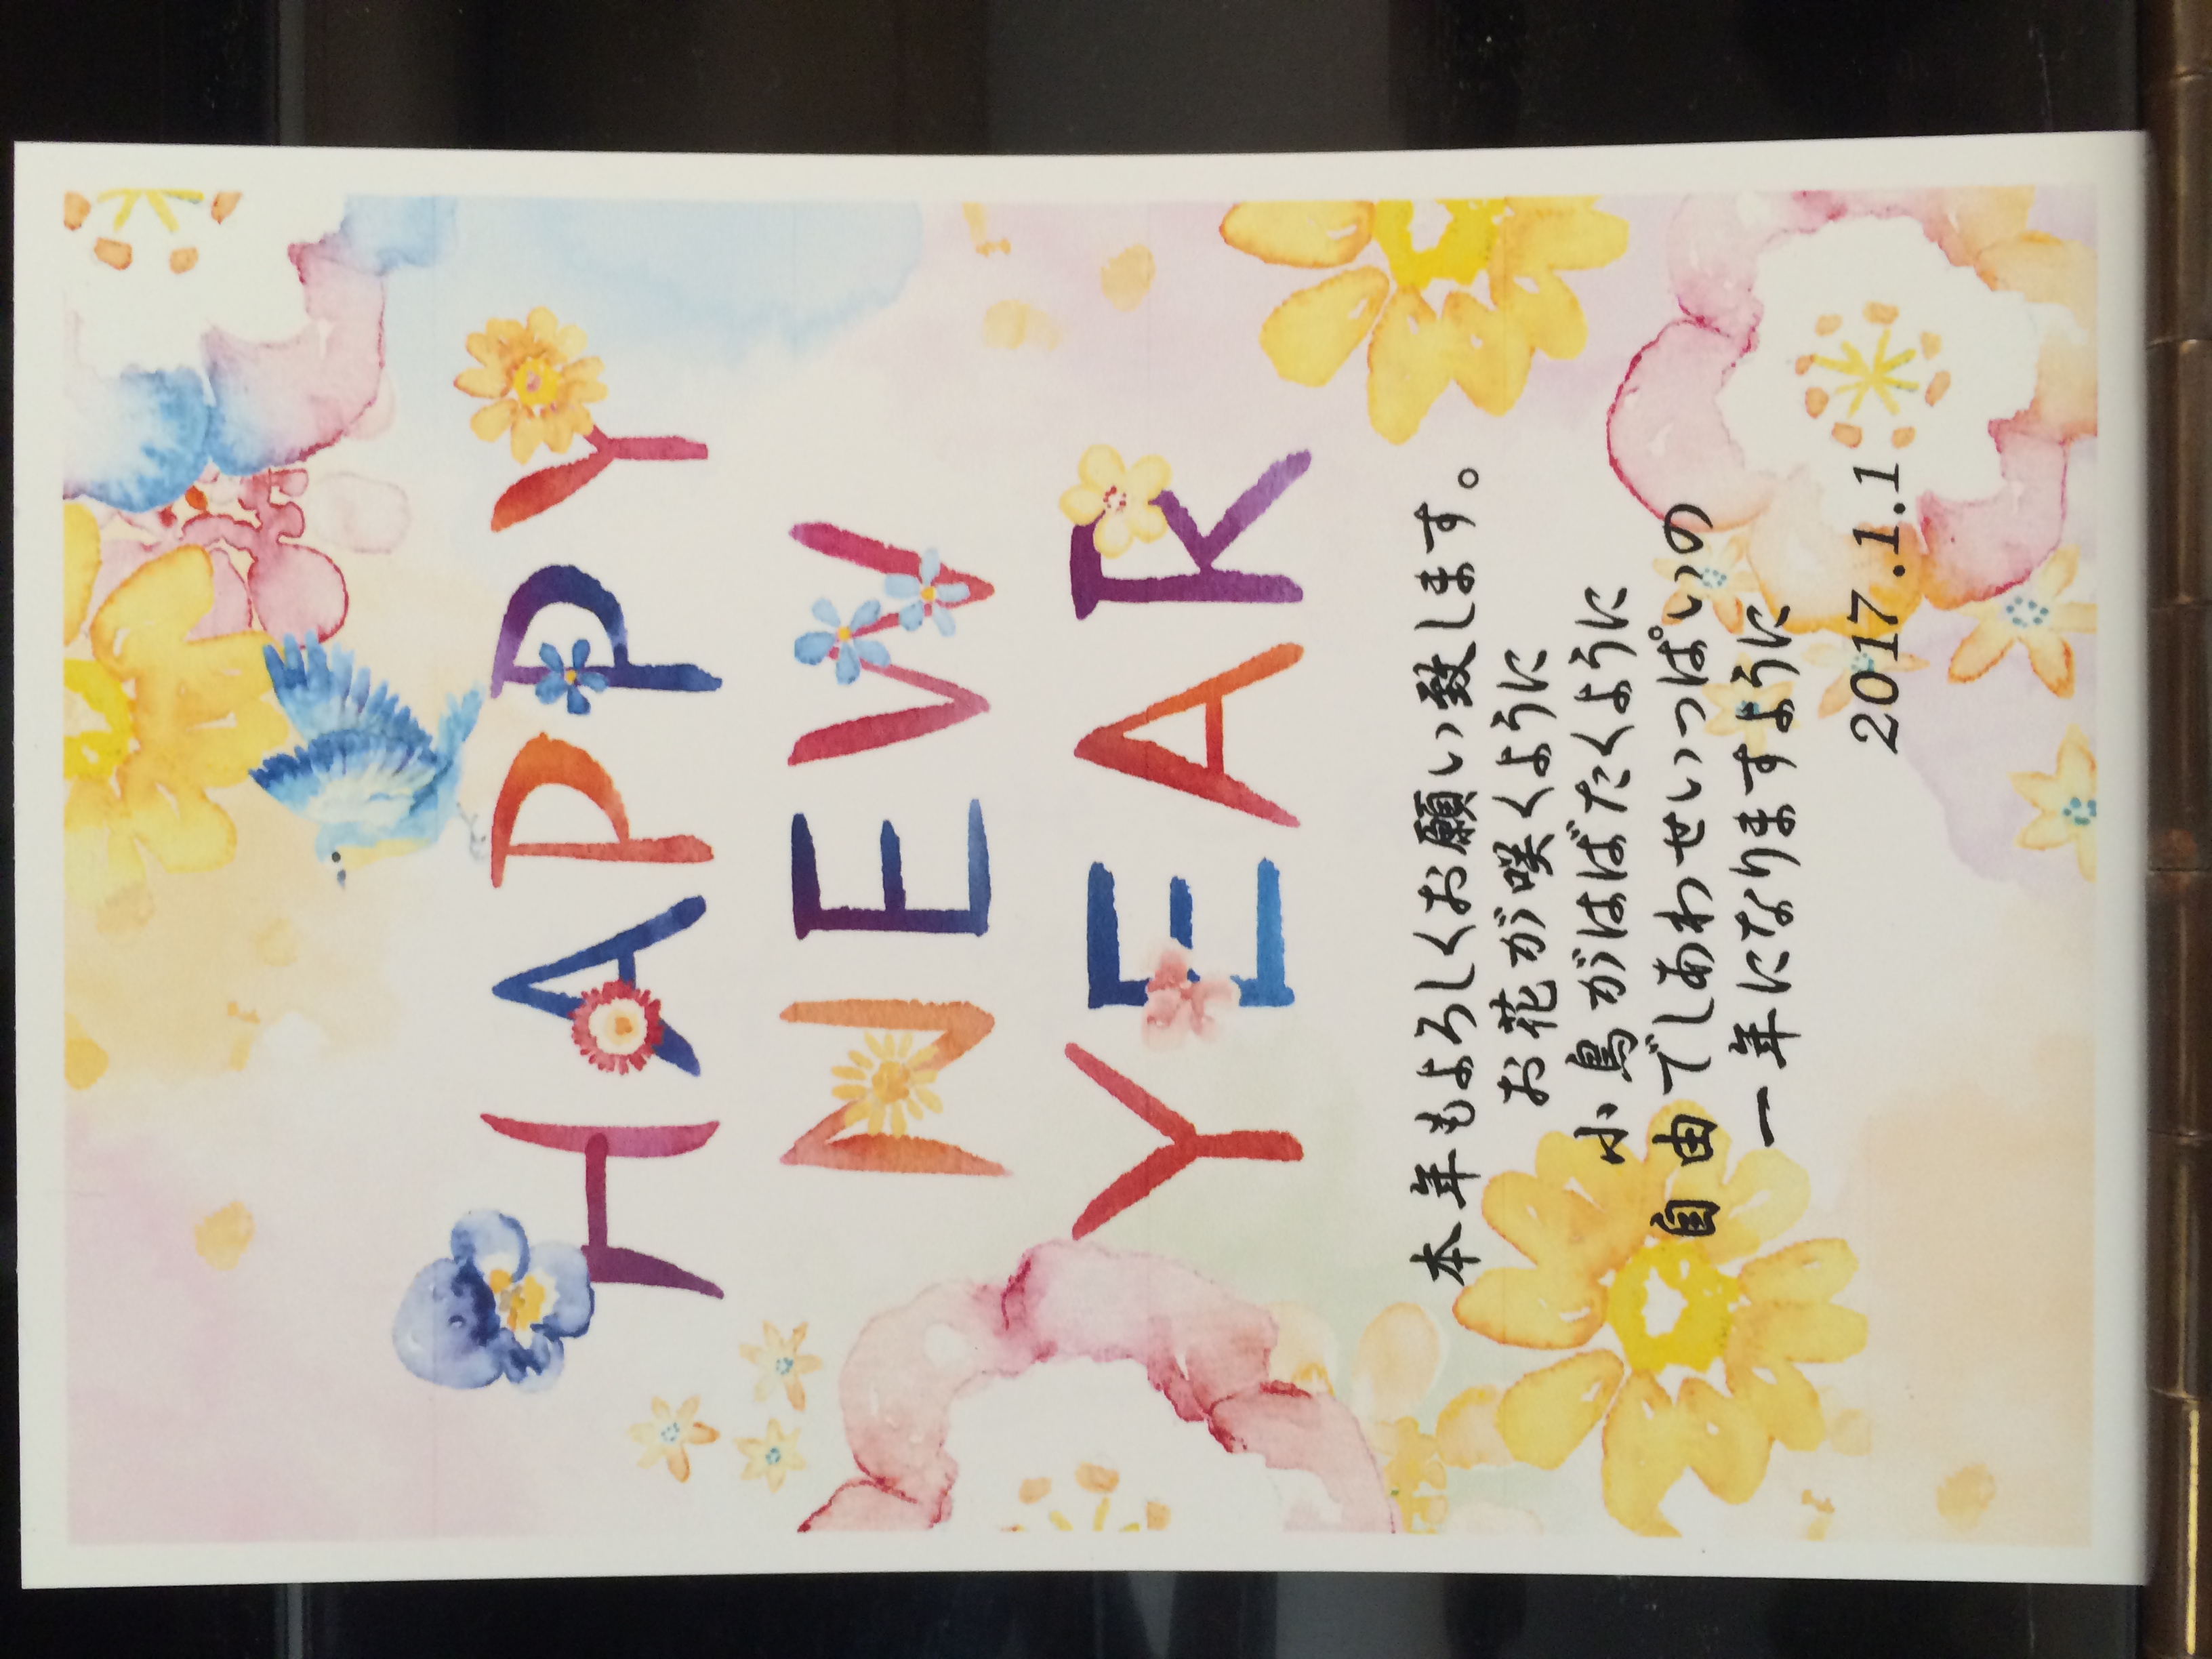 HAPPY
NEW
YEAR
本年もよろしくお願い致します。
お花が咲くように
小鳥がはばたくように
自由でしあわせいっぱいの
一年になりますように
2017.1.1